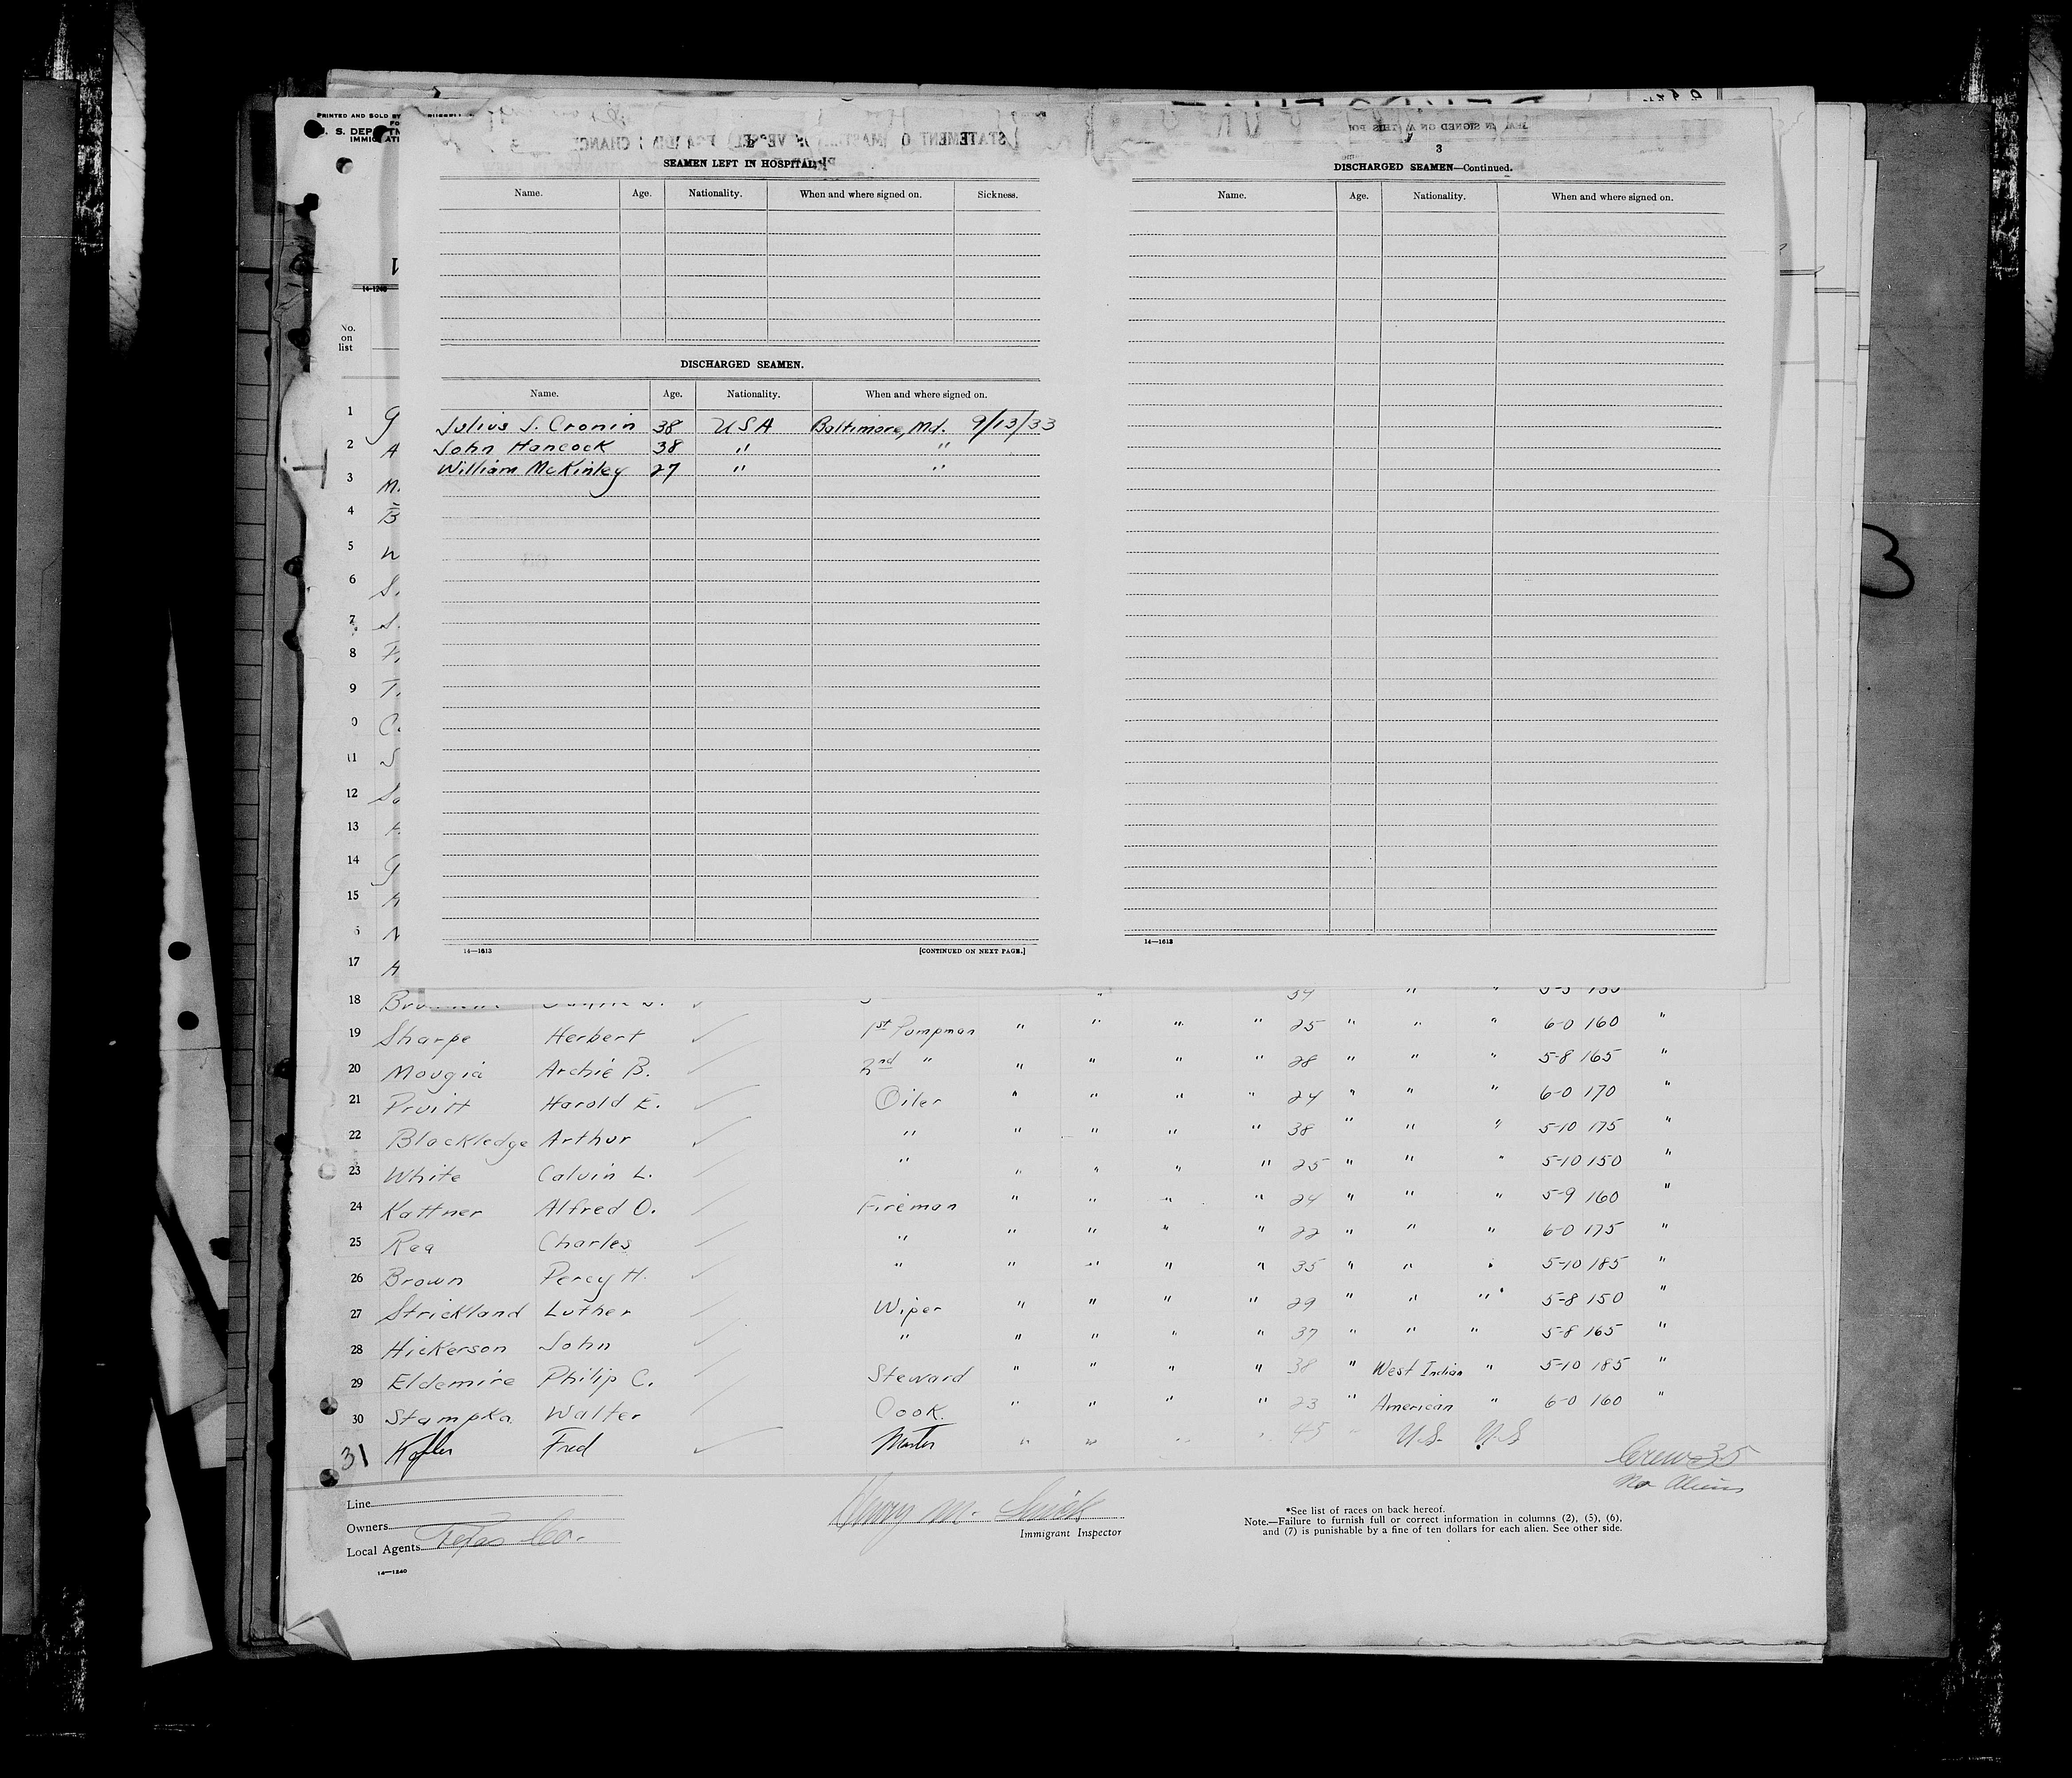 PRINTED AND SOLD BY
IMMIGRATI
SEAMEN LEFT IN HOSPITAL.
Name. Age. Nationality. When and where signed on. Sickness.
DISCHARGED SEAMEN.
Name. Age. Nationality. When and where signed on.
Julius J. Cronin 38 USA Baltimore, Md. 9/13/33
John Hancock 38 " "
William McKinley 27 " "
14—1613 [CONTINUED ON NEXT PAGE.]
3
DISCHARGED SEAMEN—Continued.
Name. Age. Nationality. When and where signed on.
14—1613
14-1240
No.
on
list
1 G
2 A
3 M.
4 B
5 W
6 S.
7 S.
8
9 T.
0 C.
11 S
12 Sa
13
14 G
15
17 A
18 34 " "
19 Sharpe Herbert 1st Pumpman " " " " 25 " " " 6-0 160 "
20 Mougia Archie B. 2nd " " " " " 28 " " " 5-8 165 "
21 Pruitt Harold E. Oiler " " " " 24 " " " 6-0 170 "
22 Blackledge Arthur " " " " " 38 " " " 5-10 175 "
23 White Calvin L. " " " " " 25 " " " 5-10 150 "
24 Kattner Alfred O. Fireman " " " " 24 " " " 5-9 160 "
25 Rea Charles " " " " " 22 " " " 6-0 175 "
26 Brown Percy H. " " " " " 35 " " " 5-10 185 "
27 Strickland Luther Wiper " " " " 29 " " " 5-8 150 "
28 Hickerson John " " " " " 37 " " " 5-8 165 "
29 Eldemire Philip C. Steward " " " " 38 " West Indian " 5-10 185 "
30 Stampka Walter Cook. " " " " 23 " American " 6-0 160 "
31 Fred Master " " " " 45 " U.S. U.S
Crew 35
No Aliens
Line
Owners
Local Agents Texas Co.
14—1240
Henry M.
Immigrant Inspector
*See list of races on back hereof.
Note.—Failure to furnish full or correct information in columns (2), (5), (6),
and (7) is punishable by a fine of ten dollars for each alien. See other side.
3